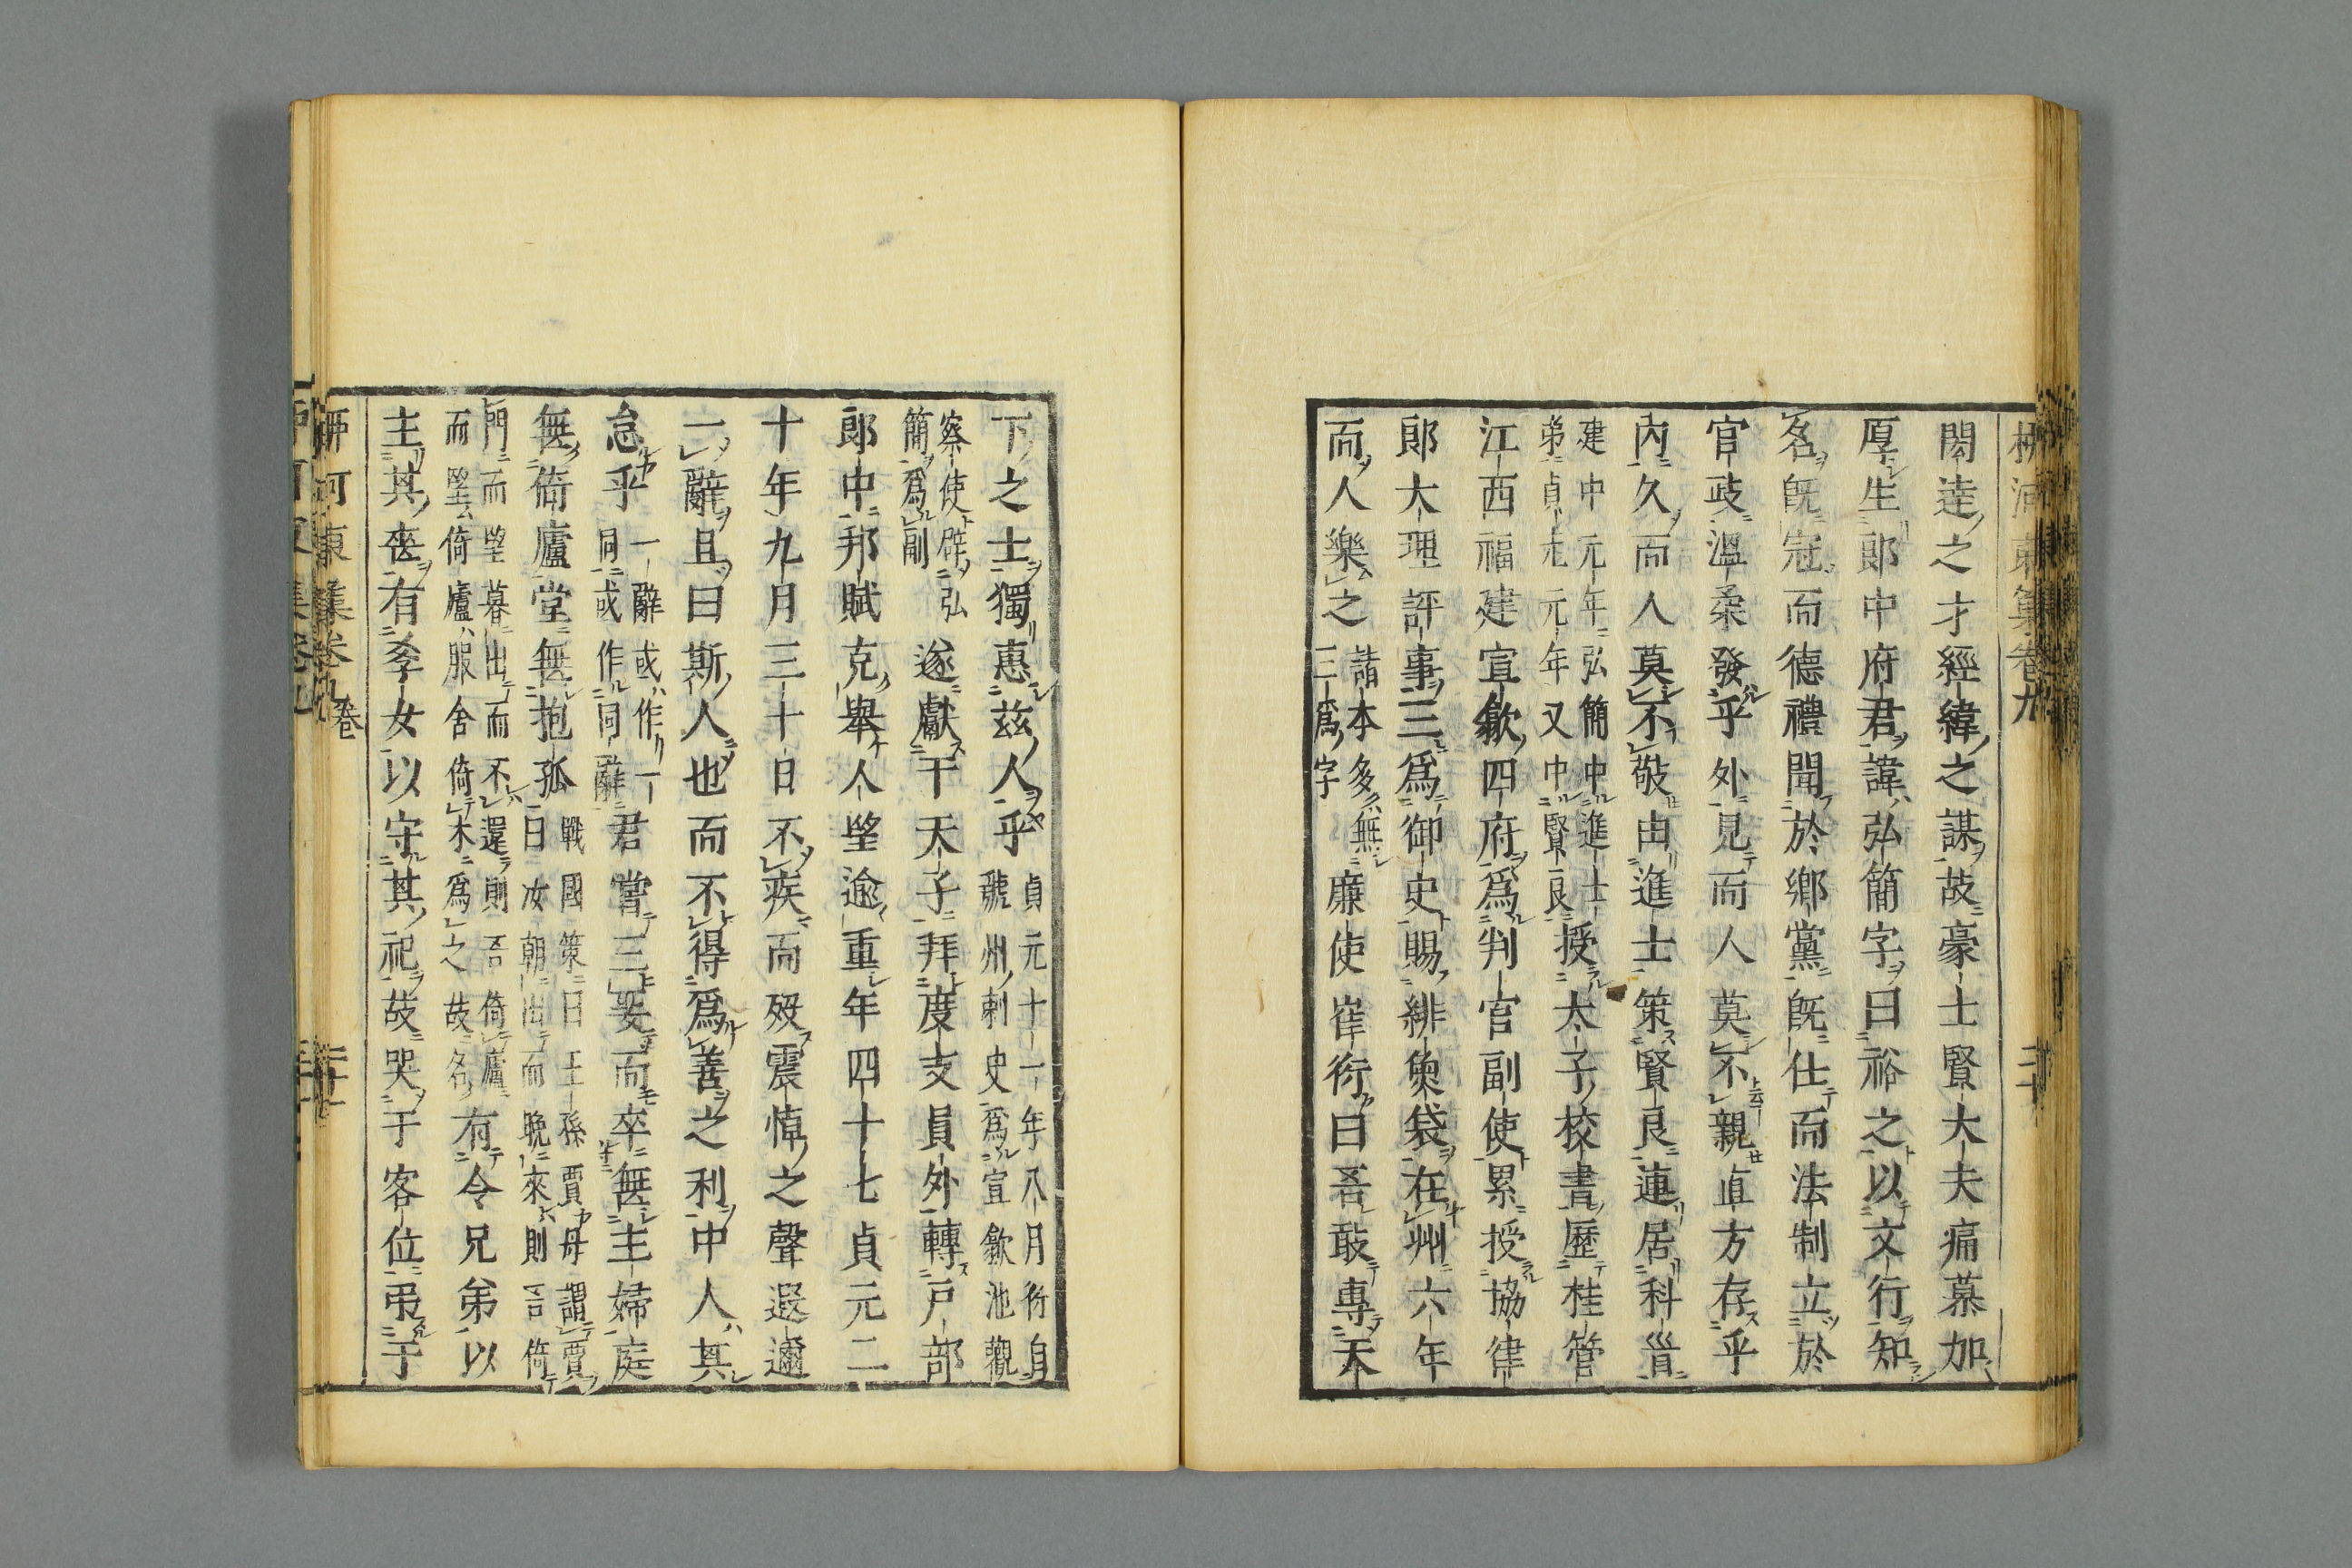 柳河東集卷九
二十
閎達之才經緯之謀故豪士賢大夫痛慕加
厚生郎中府君諱弘簡字曰裕之以文行知
名既冠而德禮聞於鄉黨既仕而法制立於
官政溫柔發乎外見而人莫不親直方存乎
內久而人莫不敬由進士策賢良連居科首
建中元年弘簡中進士
弟貞元元年又中賢良
授太子校書歷桂管
江西福建宣歙四府爲判官副使累授協律
郎大理評事三爲御史賜緋魚袋在州六年
而人樂之
諸本多無
三爲字
廉使崔衍曰吾敢專天
下之士獨惠茲人乎
貞元十一年八月衍自
虢州刺史爲宣歙池觀
察使辟弘
簡爲副
遂獻于天子拜度支員外轉戶部
郎中邦賦克舉人望逾重年四十七貞元二
十年九月三十日不疾而歿震悼之聲遐邇
一辭且曰斯人也而不得爲善之利中人其
怠乎
一辭或作一
同或作同辭
君嘗三娶而卒無主婦庭
無倚廬堂無抱孤
戰國策曰王孫賈母謂賈
曰汝朝出而晚來則吾倚
門而望暮出而不還則吾倚廬
而望倚廬服舍倚木爲之故名
有令兄弟以
主其喪有孥女以守其祀故哭于客位弔于
柳河東集卷九